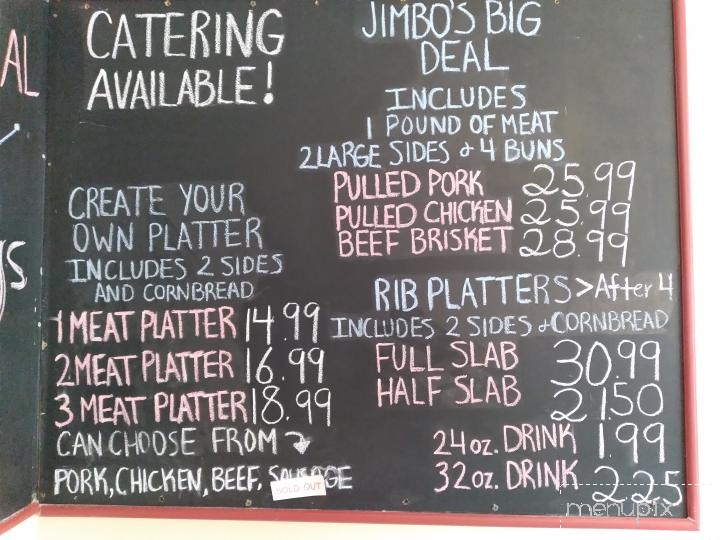 AL
S
CATERING
AVAILABLE!
CREATE YOUR
OWN PLATTER
INCLUDES 2 SIDES
AND CORNBREAD
1 MEAT PLATTER 14.99
2 MEAT PLATTER 16.99
3 MEAT PLATTER 18.99
CAN CHOOSE FROM
PORK, CHICKEN, BEEF, SAUSAGE
SOLD OUT
JIMBO'S BIG
DEAL
INCLUDES
1 POUND OF MEAT
2 LARGE SIDES & 4 BUNS
PULLED PORK 25.99
PULLED CHICKEN 25.99
BEEF BRISKET 28.99
RIB PLATTERS > After 4
INCLUDES 2 SIDES & CORNBREAD
FULL SLAB 30.99
HALF SLAB 21.50
24 oz. DRINK 1.99
32 oz. DRINK 2.25
menupix